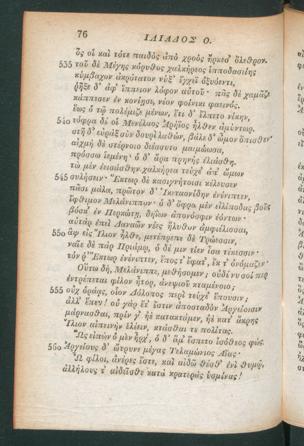 76 ΙΛΙΑΔΟΣ Ο.
ὅς οἱ καὶ τότε παιδὸς ἀπὸ χροὸς ἤρκεσ' ὄλεθρον.
535 τοῦ δὲ Μέγης κόρυθος χαλκήρεος ἱπποδασείης
κύμβαχον ἀκρότατον νύξ' ἔγχεϊ ὀξυόεντι,
ῥῆξε δ' ἀφ' ἵππειον λόφον αὐτοῦ· πᾶς δὲ χαμᾶζε
κάππεσεν ἐν κονίῃσι, νέον φοίνικι φαεινός.
ἕως ὁ τῷ πολέμιζε μένων, ἔτι δ' ἔλπετο νίκην,
540 τόφρα δὲ οἱ Μενέλαος Ἀρήϊος ἦλθεν ἀμύντωρ.
στῆ δ' εὐρὰξ σὺν δουρὶ λαθὼν, βάλε δ' ὦμον ὄπισθεν·
αἰχμὴ δὲ στέρνοιο διέσσυτο μαιμώωσα,
πρόσσω ἱεμένη· ὁ δ' ἄρα πρηνὴς ἐλιάσθη.
τὼ μὲν ἐεισάσθην χαλκήρεα τεύχε' ἀπ' ὤμων
545 συλήσειν· Ἕκτωρ δὲ κασιγνήτοισι κέλευσεν
πᾶσι μάλα, πρῶτον δ' Ἱκεταονίδην ἐνένιπτεν,
ἴφθιμον Μελάνιππον· ὁ δ' ὄφρα μὲν εἰλίποδας βοῦς
βόσκ' ἐν Περκώτῃ, δηΐων ἀπονόσφιν ἐόντων·
αὐτὰρ ἐπεὶ Δαναῶν νέες ἤλυθον ἀμφιέλισσαι,
550 ἂψ εἰς Ἴλιον ἦλθε, μετέπρεπε δὲ Τρώεσσιν,
ναῖε δὲ πὰρ Πριάμῳ, ὁ δέ μιν τίεν ἶσα τέκεσσιν·
τόν ῥ' Ἕκτωρ ἐνένιπτεν, ἔπος τ' ἔφατ', ἔκ τ' ὀνόμαζεν·
Οὕτω δὴ, Μελάνιππε, μεθήσομεν; οὐδέ νυ σοί περ
ἐντρέπεται φίλον ἦτορ, ἀνεψιοῦ κταμένοιο;
555 οὐχ ὁράᾳς, οἷον Δόλοπος περὶ τεύχε' ἕπουσιν;
ἀλλ' ἕπευ! οὐ γὰρ ἔτ' ἔστιν ἀποσταδὸν Ἀργείοισιν
μάρνασθαι, πρίν γ' ἠὲ κατακτάμεν, ἠὲ κατ' ἄκρης
Ἴλιον αἰπεινὴν ἑλέειν, κτάσθαι τε πολίτας.
Ὣς εἰπὼν ὁ μὲν ἦρχ', ὁ δ' ἅμ' ἕσπετο ἰσόθεος φώς.
560 Ἀργείους δ' ὤτρυνε μέγας Τελαμώνιος Αἴας·
Ὦ φίλοι, ἀνέρες ἔστε, καὶ αἰδῶ θέσθ' ἐνὶ θυμῷ,
ἀλλήλους τ' αἰδεῖσθε κατὰ κρατερὰς ὑσμίνας!